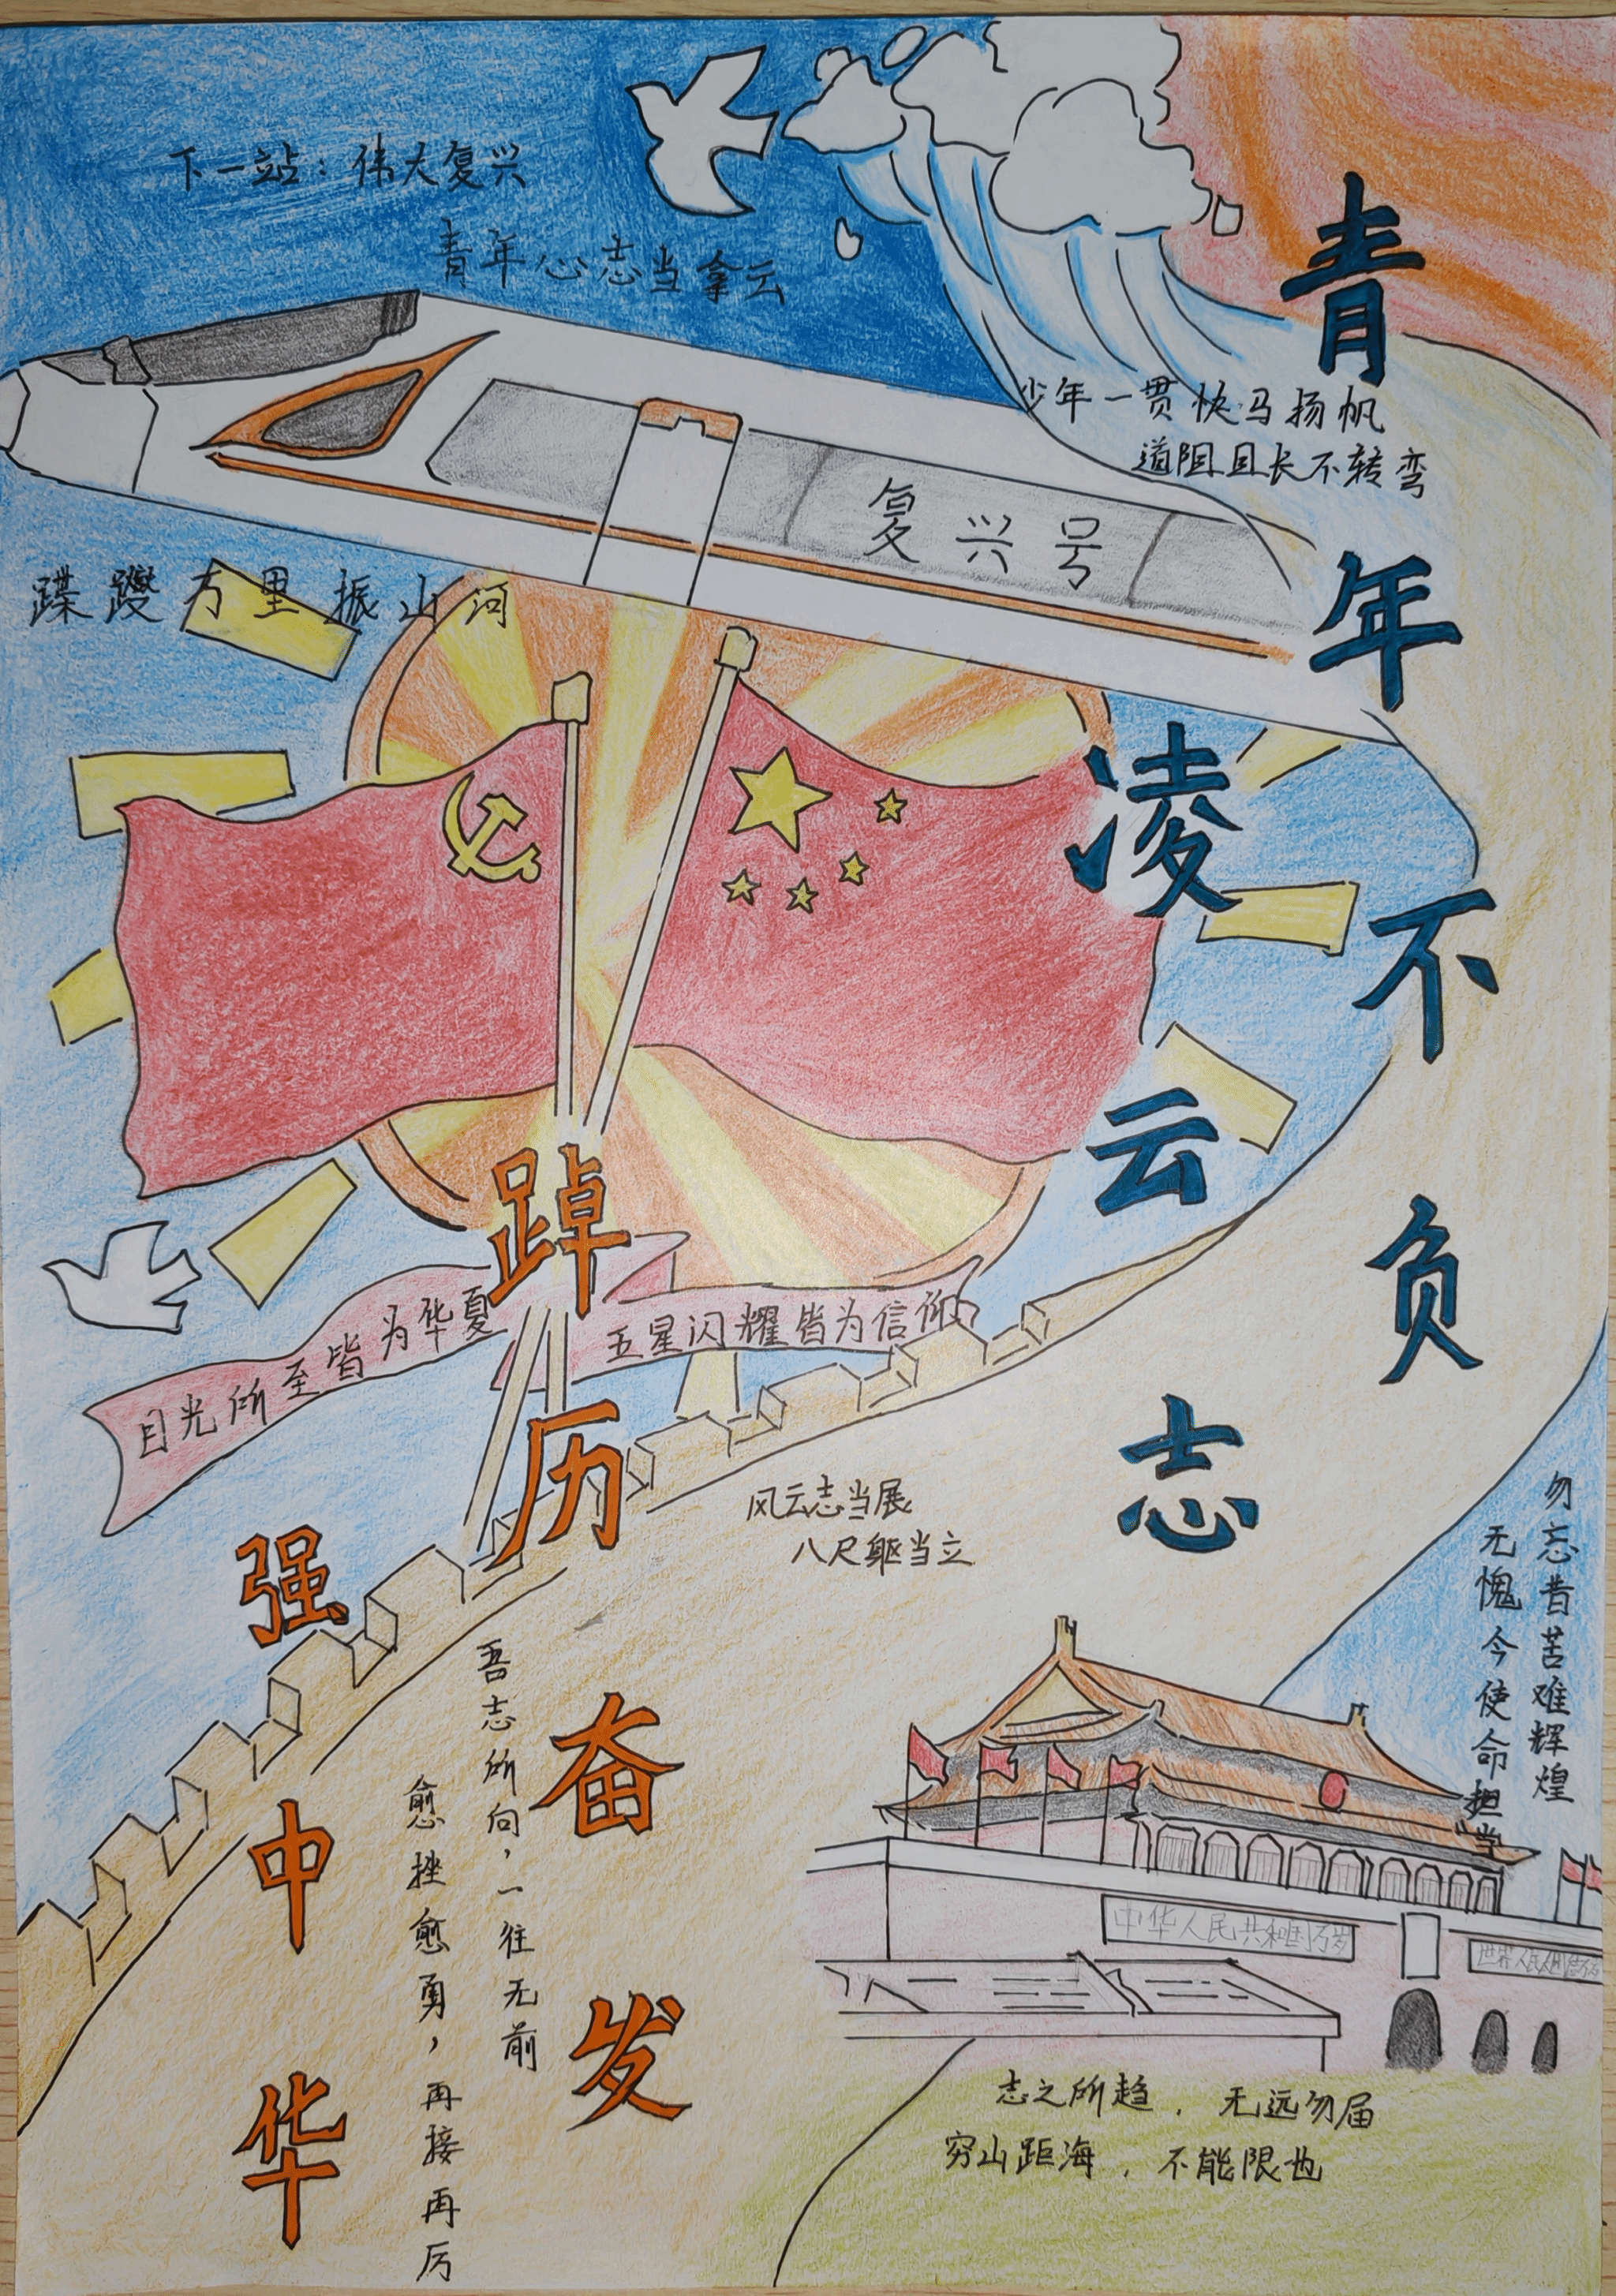 下一站：伟大复兴
青年心志当拿云
少年一贯快马扬帆
道阻且长不转弯
复兴号
蹀躞万里振山河
青年不负
凌云志
目光所至皆为华夏
五星闪耀皆为信仰
踔厉奋发
强中华
风云志当展
八尺躯当立
勿忘昔苦难辉煌
无愧今使命担当
吾志所向，一往无前
愈挫愈勇，再接再厉
中华人民共和国万岁
世界人民
志之所趋，无远勿届
穷山距海，不能限也